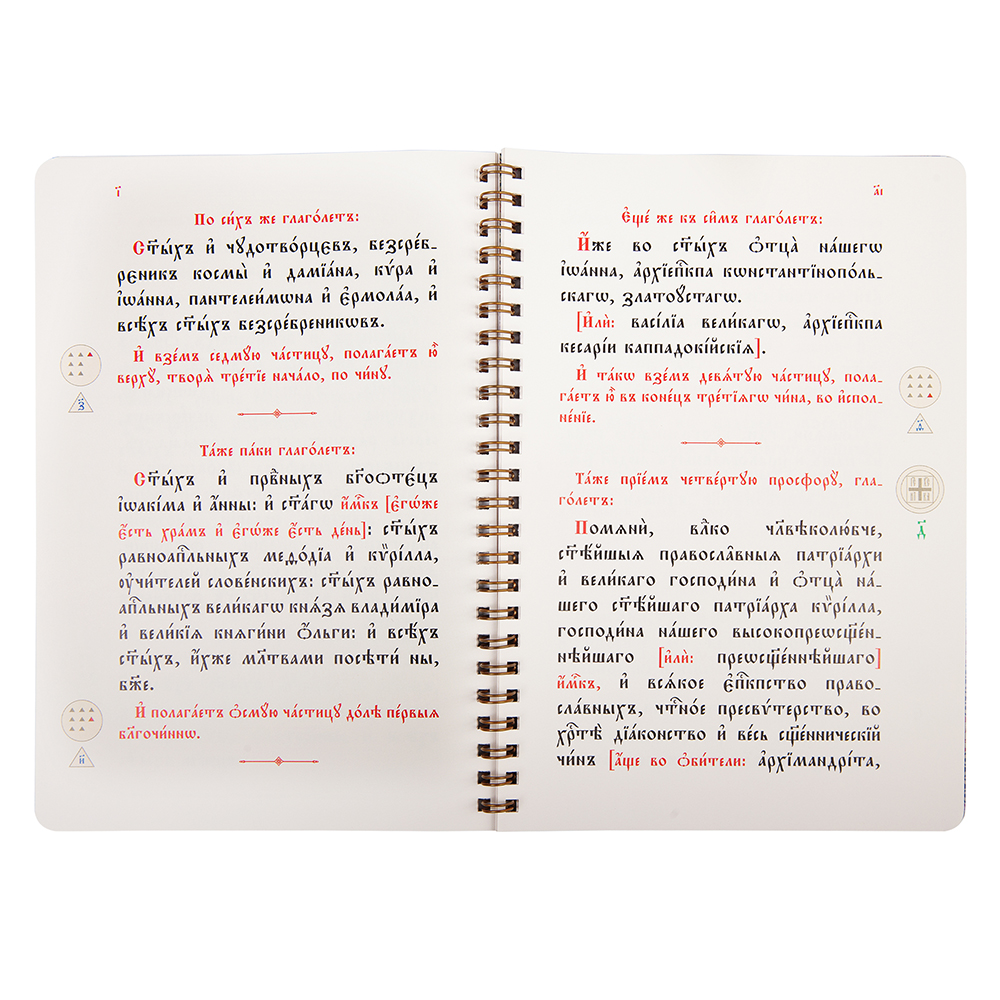 і҃
По си́хъ же глаго́летъ:
Ст҃ы́хъ и҆ чꙋдотво́рцєвъ, безсре́б-
рєникъ космы̀ и҆ дамїа́на, кѵ́ра и҆
і҆ѡа́нна, пантелеи́мѡна и҆ є҆рмола́а, и҆
всѣ́хъ ст҃ы́хъ безсре́бреникѡвъ.
И҆ взе́мъ седмꙋ́ю части́цꙋ, полага́етъ ю҆̀
верхꙋ̀, творѧ̀ тре́тїе нача́ло, по чи́нꙋ.
з҃
Та́же па́ки глаго́летъ:
Ст҃ы́хъ и҆ пра́вⷣныхъ бг҃оѻте́цъ
і҆ѡакі́ма и҆ а҆́нны: и҆ ст҃а́гѡ и҆́мⷬ҇къ [є҆гѡ́же
є҆́сть хра́мъ и҆ є҆гѡ́же є҆́сть де́нь]: ст҃ы́хъ
равноап҇льныхъ меѳо́дїа и҆ кѷрі́лла,
ᲂу҆чи́телей слове́нскихъ: ст҃ы́хъ равно-
ап҇льныхъ вели́кагѡ кнѧ́зѧ влади́мїра
и҆ вели́кїѧ кнѧги́ни ѻ҆́льги: и҆ всѣ́хъ
ст҃ы́хъ, и҆́хже мл҃твами посѣти́ ны,
бж҃е.
И҆ полага́етъ ѻ҆смꙋ́ю части́цꙋ до́лѣ пе́рвыѧ
бл҃гочи́ннѡ.
и҃
а҃і
Є҆ще́ же къ си̑мъ глаго́летъ:
И҆́же во ст҃ы́хъ ѻ҆тца̀ на́шегѡ
і҆ѡа́нна, а҆рхїеп҇кпа кѡнстантїнопо́ль-
скагѡ, златоꙋ́стагѡ.
[И҆лѝ: васі́лїа вели́кагѡ, а҆рхїеп҇кпа
кесарі́и каппадокі́йскїѧ].
И҆ та́кѡ взе́мъ девѧ́тꙋю части́цꙋ, пола-
га́етъ ю҆̀ въ коне́цъ тре́тїѧгѡ чи́на, во и҆спол-
не́нїе.
ѳ҃
Та́же прїе́мъ четве́ртꙋю просфорꙋ̀, гла-
го́летъ:
д҃
Помѧнѝ, влⷣко чл҃вѣколю́бче,
ст҃ѣ́йшыѧ правосла̑вныѧ патрїа́рхи
и҆ вели́каго господи́на и҆ ѻ҆тца̀ на́-
шего ст҃ѣ́йшаго патрїа́рха кѷрі́лла,
господи́на на́шего высокопреѡсщ҃е́н-
нѣйшаго [и҆лѝ: преѡсщ҃е́ннѣйшаго]
и҆́мⷬ҇къ, и҆ всѧ́кое є҆п҇кпство право-
сла́вныхъ, чⷭ҇тно́е пресвѵ́терство, во
хрⷭ҇тѣ̀ дїа́конство и҆ ве́сь сщ҃е́нническїй
чи́нъ [а҆́ще во ѻ҆би́тели: а҆рхїмандрі́та,